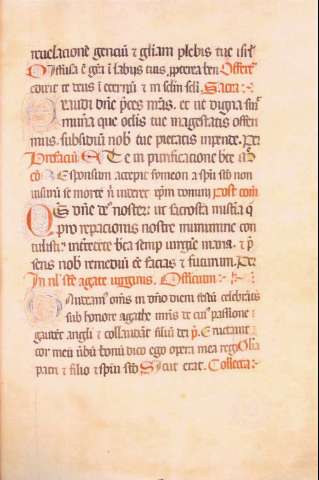 reuelacionē genciū & gl̄iam plebis tue isrl̄
Diffusa ē gr̄a ī labijs tuis. ꝓpterea ben Offere
dixit te deus ī eternū & in sclm̄ scl̄i. Sacra
Exaudi dn̄e p̄ces nr̄as. et ut digna sint
munera que oclis tue magestatis offeri
mus. subsidiū nob̄ tue pietatis inpende. Per
Prefaciū. Et te in purificacione bt̄e
cō Responsum accepit symeon a spū sc̄o non
uisurū se mortē n̄ uideret xp̄m domini Post com̄
Qs dn̄e ds̄ noster. ut sacrosta misteria q̄
pro reparacionis nostre munimine con
tulisti. intercete bt̄a semp̄ uirgīe maria. & p̄
sens nob̄ remediū ēe facias & futurum. Per
In nl̄ sc̄e agate uirginis. Officium
Gaudeamus om̄s in dn̄o diem festū celebrātes
sub honore agathe mr̄is de cuiꝰ passione
gaudēt angl̄i & collaudāt filiū dei p̄. Eructauit
cor meū ūbū bonū dico ego opera mea regi Glīa
patri & filio & spūi sc̄o Sicut erat. Collecta